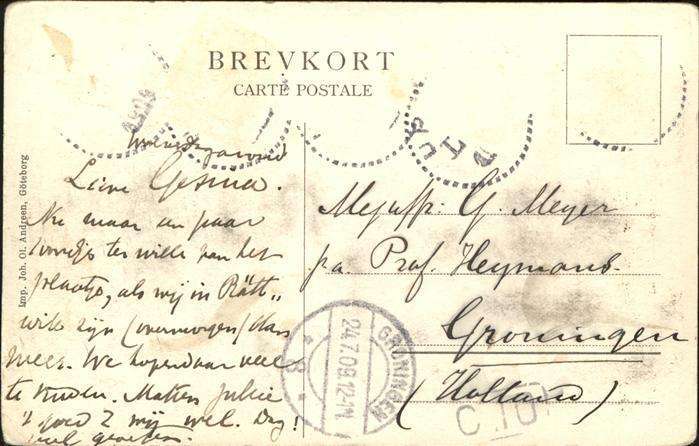 BREVKORT
CARTE POSTALE
Imp. Joh. Ol. Andreen, Göteborg
Woensdagavond
Lieve Gesina.
Nu maar een paar
woordjes ter wille van het
plaatje, als wij in Rätt„
wik zijn (overmorgen)
meer. We hopen daar veel
te vinden. Jullie
't goed? Wij wel. Dag!
veel groeten.
Mejuffr. G. Meyer
p/a. Prof. Heymans
Groningen
(Holland)
GRONINGEN
24.7.09.12-1
8
PST
C 107